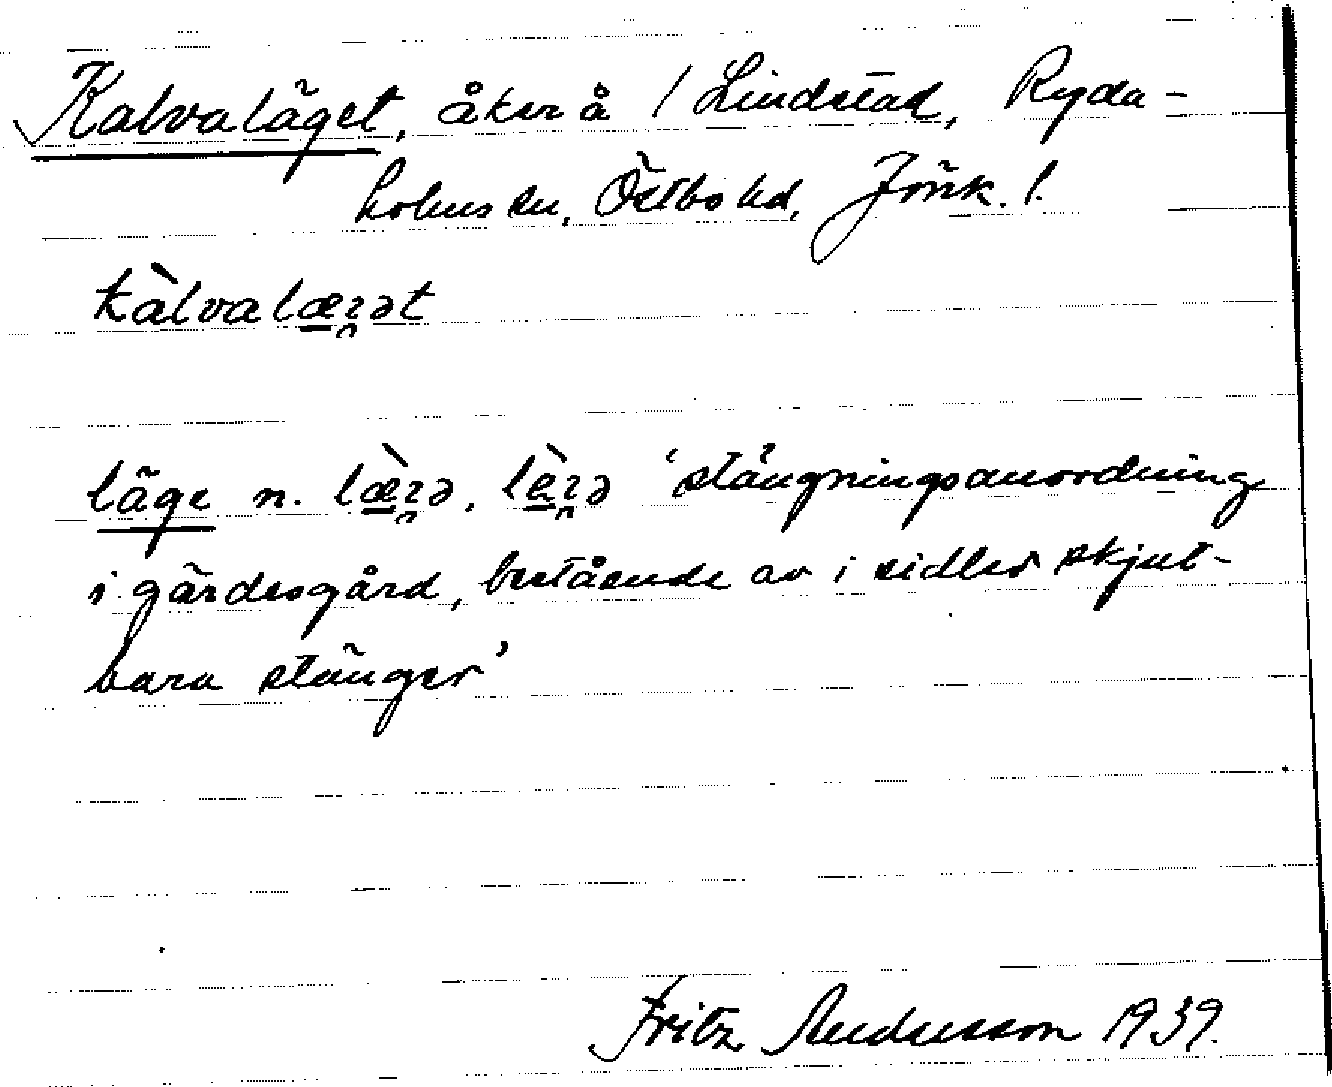 Kalvaläget, åker å 1 Lindstad, Ryda-
holms sn, Östbo hd, Jönk. l.
kàlvalæɀət
läge n. læ̀ɀə, lèɀə 'stängningsanordning
i gärdesgård, bestående av i sidled skjut-
bara stänger'
Fritz Andersson 1939.